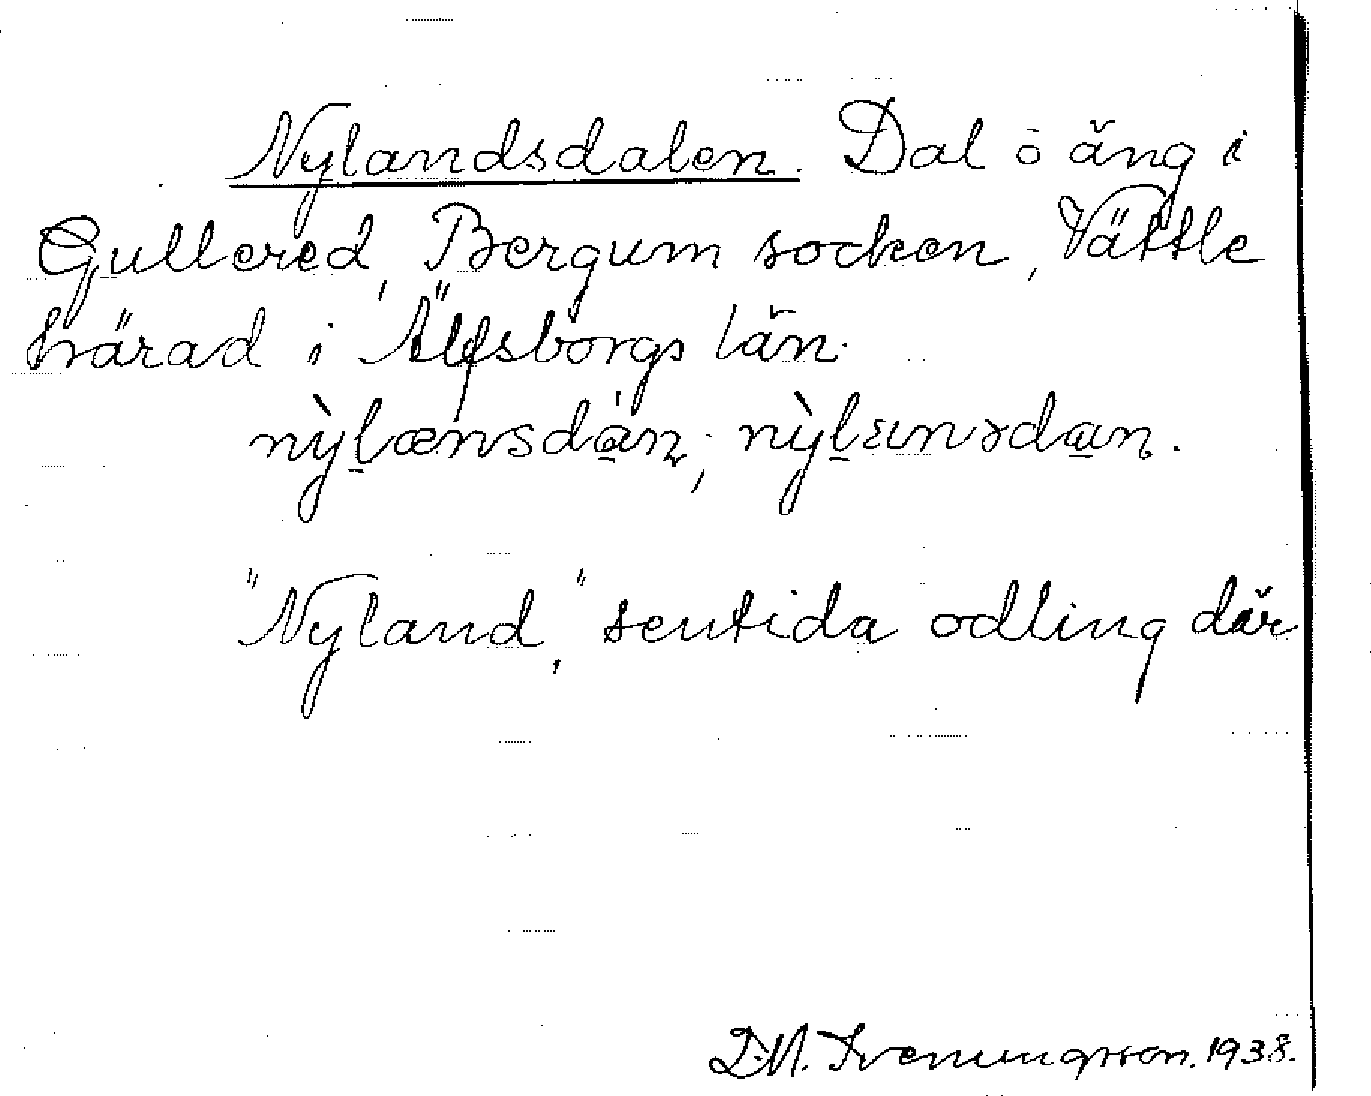 Nylandsdalen. Dal o äng i
Gullered, Bergum socken, Vättle
härad i Älfsborgs län.
nỳlænsdán; nỳlænsdan.
"Nyland," sentida odling där
D.N. Svenungsson. 1938.